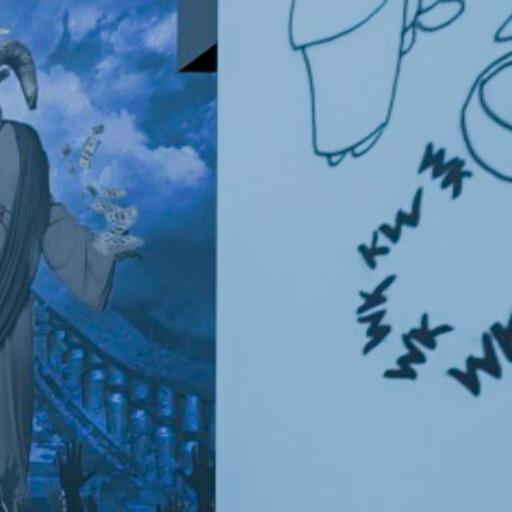 WK
KW
WK
WK
WK